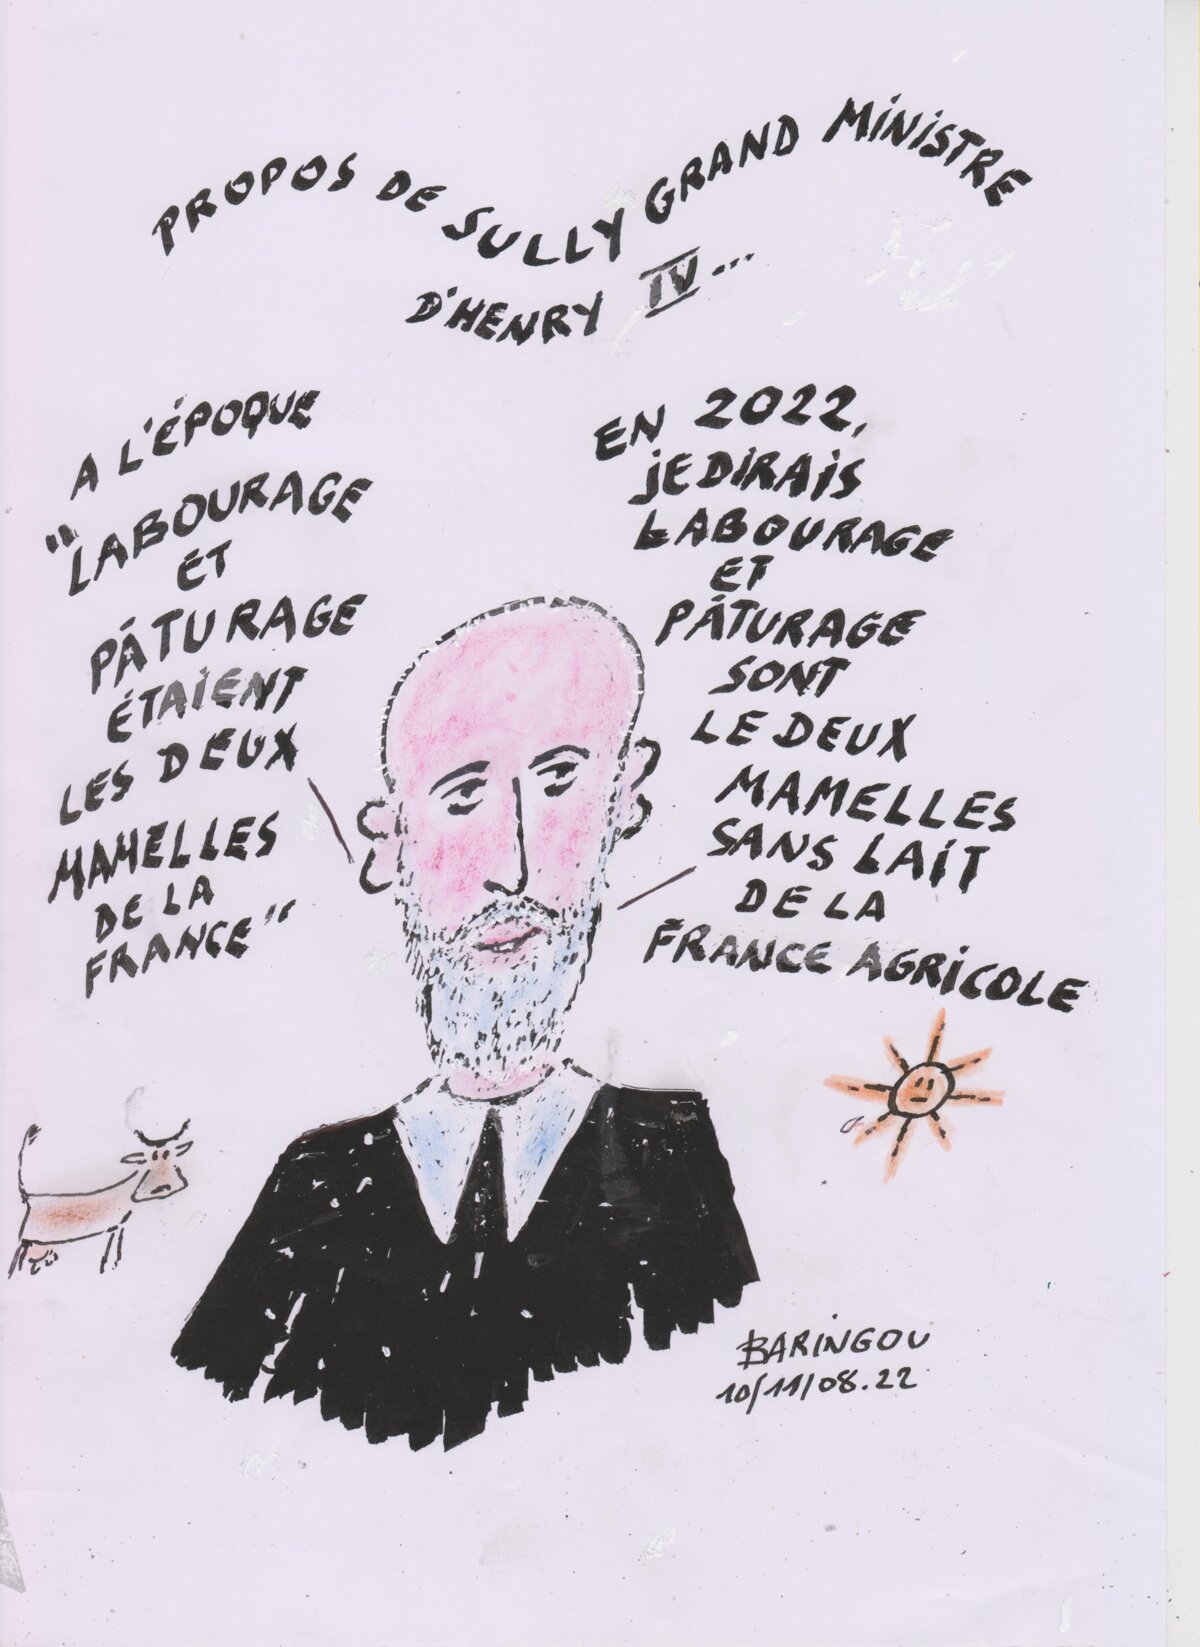 PROPOS DE SULLY GRAND MINISTRE
D'HENRY IV...
A L'ÉPOQUE
"LABOURAGE
ET
PÂTURAGE
ÉTAIENT
LES DEUX
MAMELLES
DE LA
FRANCE"
EN 2022,
JE DIRAIS
LABOURAGE
ET
PÂTURAGE
SONT
LE DEUX
MAMELLES
SANS LAIT
DE LA
FRANCE AGRICOLE
BARINGOU
10/11/08.22